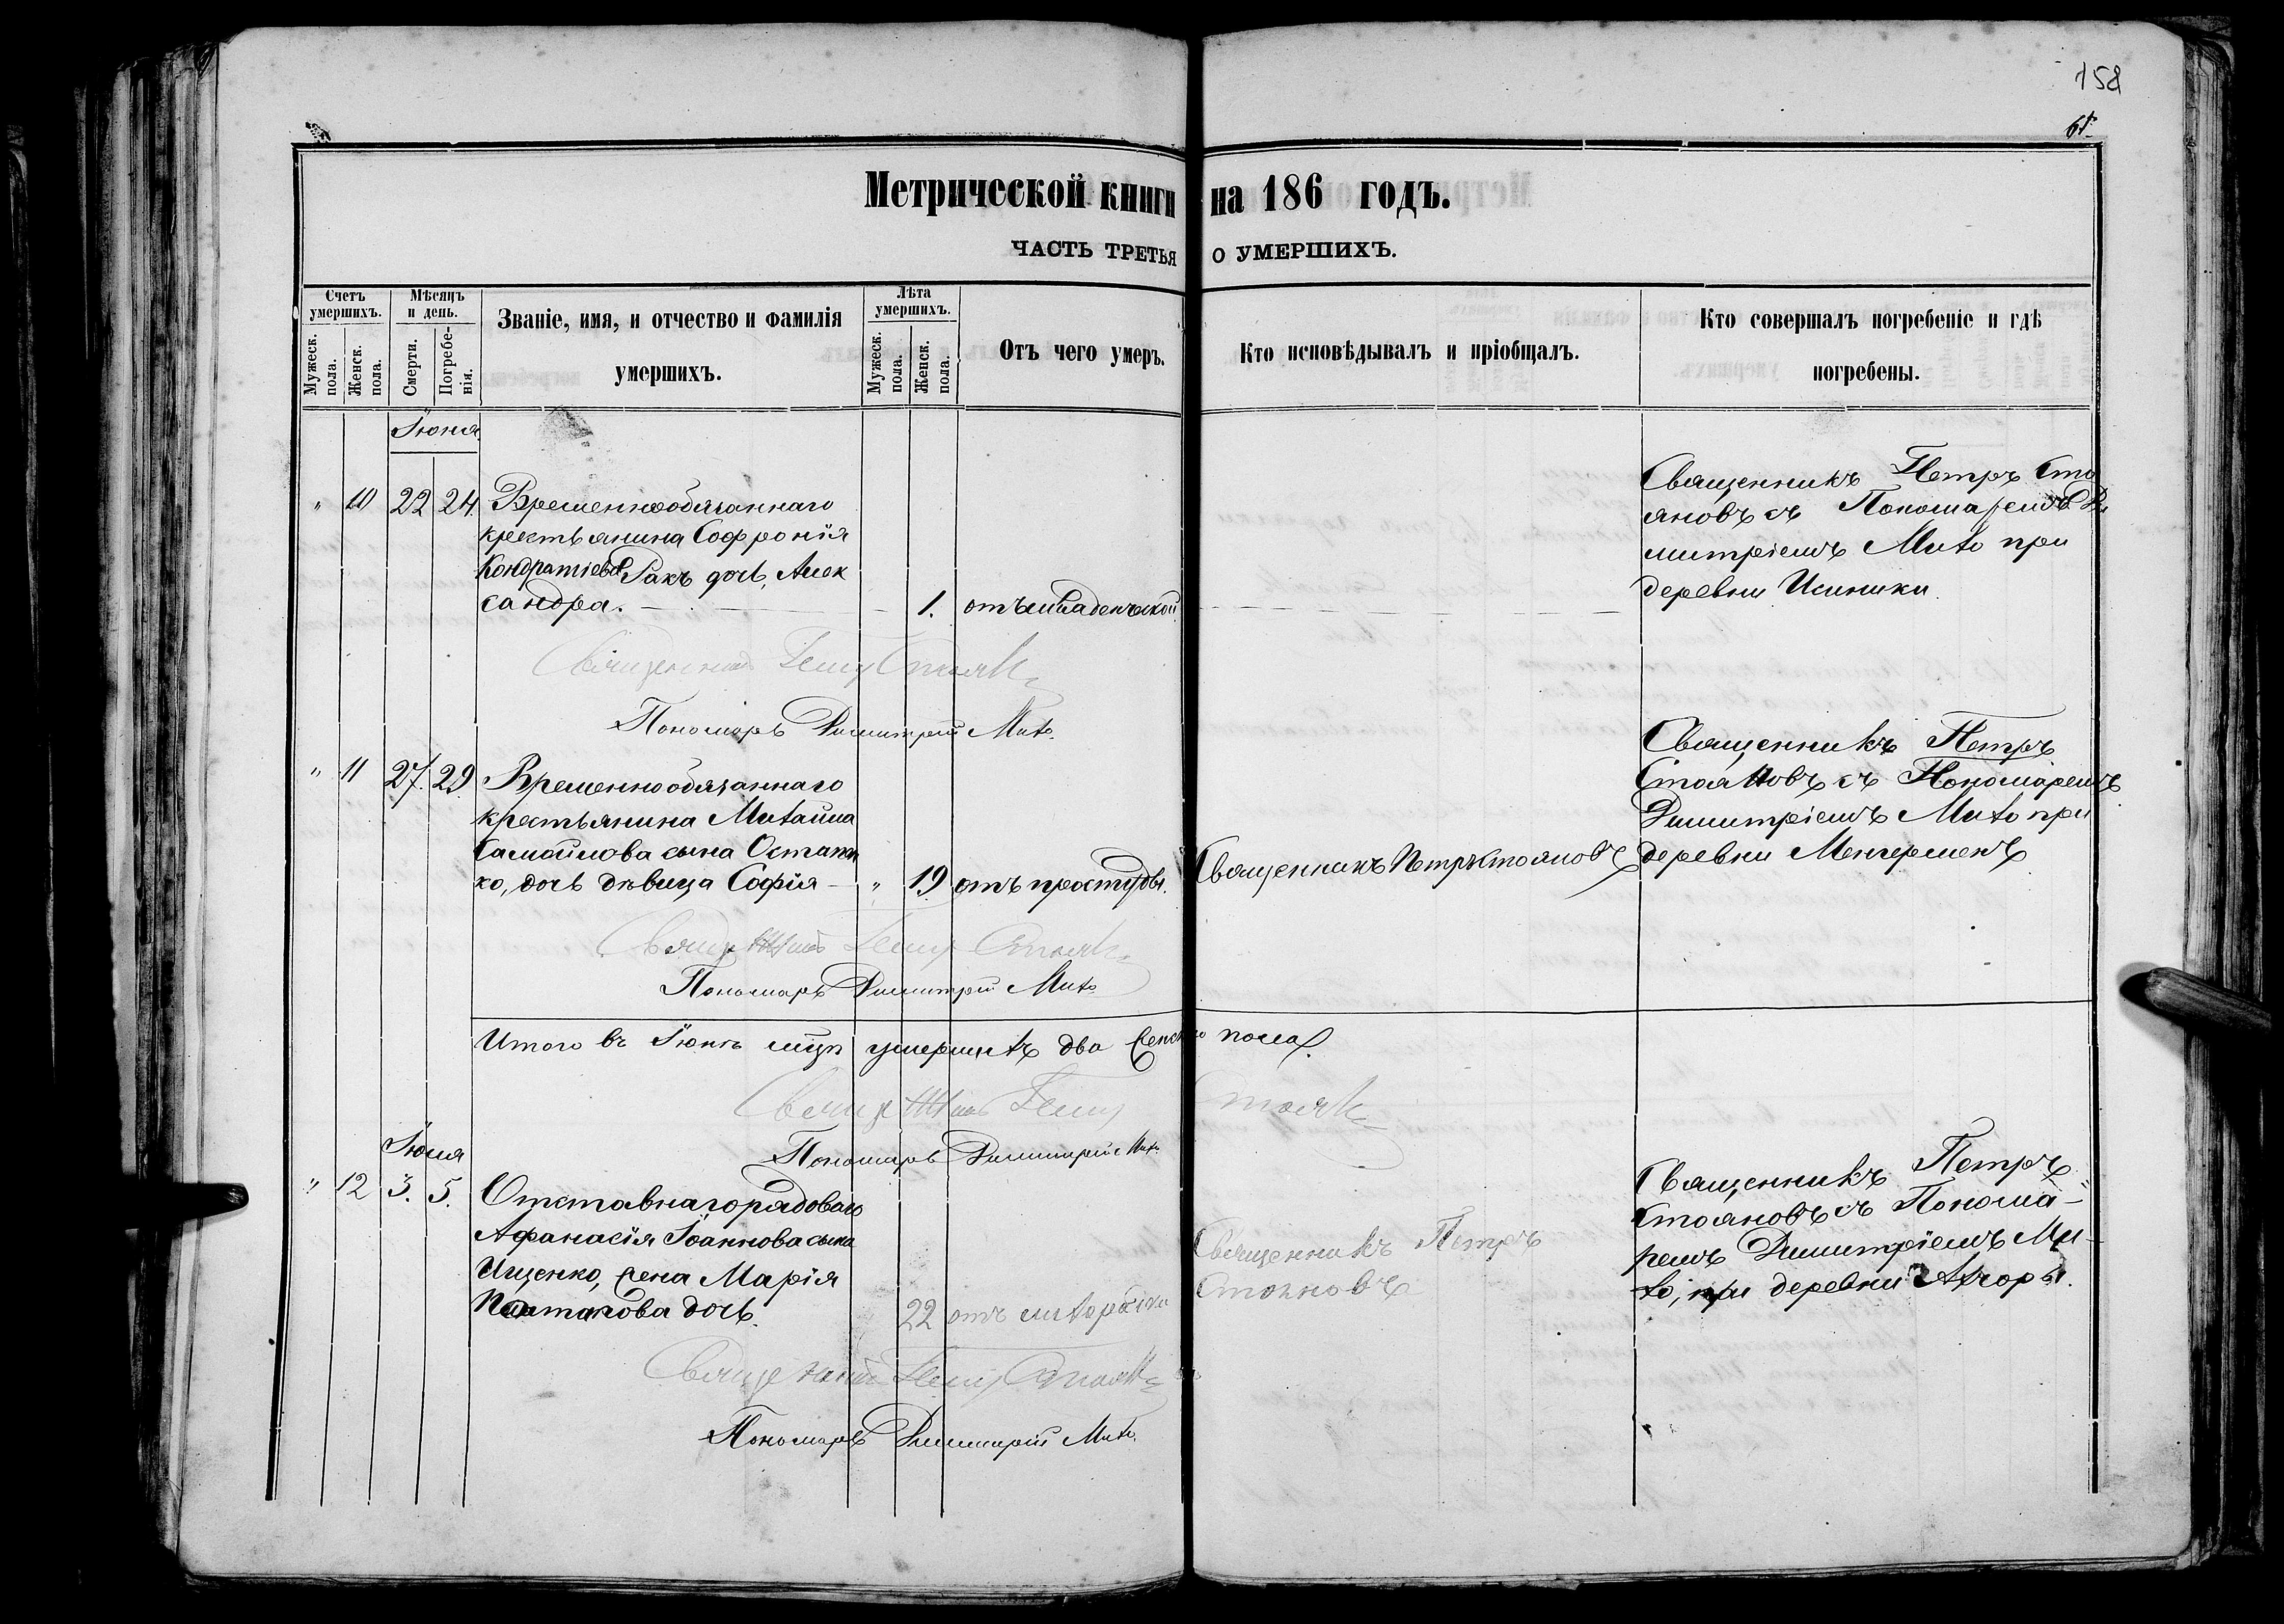 158
61
Метрической книги на 186 годъ.
ЧАСТЬ ТРЕТЬЯ О УМЕРШИХЪ.
Счетъ умершихъ.
Мужеск. пола.
Женск. пола.
Мѣсяцъ и день.
Смерти.
Погребе-
нія.
Званіе, имя, и отчество и фамилія
умершихъ.
Лѣта умершихъ.
Мужеск. пола.
Женск. пола.
Отъ чего умеръ.
Кто исповѣдывалъ и пріобщалъ.
Кто совершалъ погребеніе и гдѣ
погребены.
Іюня
" 10 22 24 Временнообязаннаго
крестьянина Софронія
Кондратіева Ракъ дочь, Алек
сандра. — 1. отъ младенческой
Священникъ Петръ Сто
яновъ съ Пономаремъ Ди
митріемъ Михо при
деревни
Священникъ Петръ Стоян
Пономарь Димитрій Михо
" 11 27. 29 Временнообязаннаго
крестьянина Михаила
Самойлова сына Остапен
ко, дочь дѣвица Софія — " 19 отъ простуды.
Священникъ Петръ Стояновъ
Священникъ Петръ
Стояновъ съ Пономаремъ
Димитріемъ Михо при
деревни Менгерменъ
Священникъ Петръ Стоян
Пономарь Димитрій Михо
Итого въ Іюнѣ мцѣ умершихъ два женско пола.
Священникъ Петръ Стоян
Пономарь Димитрій Михо
Іюля
" 12 3. 5. Отставнаго рядоваго
Афанасія Іоаннова сына
Ищенко, жена Марія
дочь. 22 отъ лихорадки
Священникъ Петръ
Стояновъ
Священникъ Петръ
Стояновъ съ Понома-
ремъ Димитріемъ Ми-
хо, при деревни
Священникъ Петръ Стоян
Пономарь Димитрій Михо.